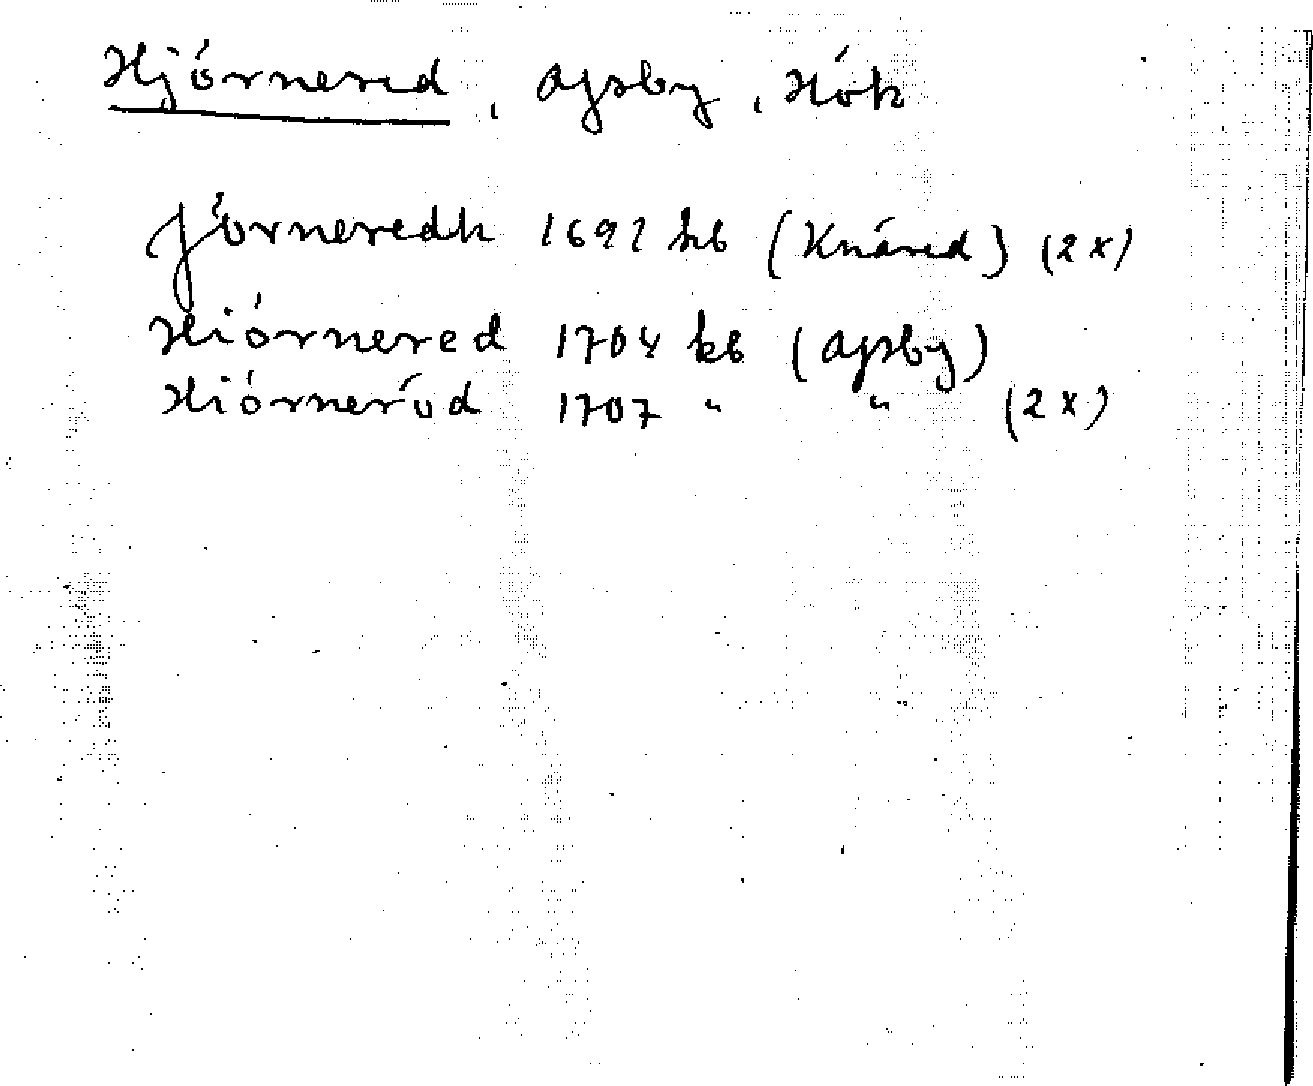 Hjörnered, Ajsby, Hök
Jörneredh 1692 kb (Knäred) (2 x)
Hiörnered 1704 kb (Ajsby)
Hiörneröd 1707 " " (2 x)